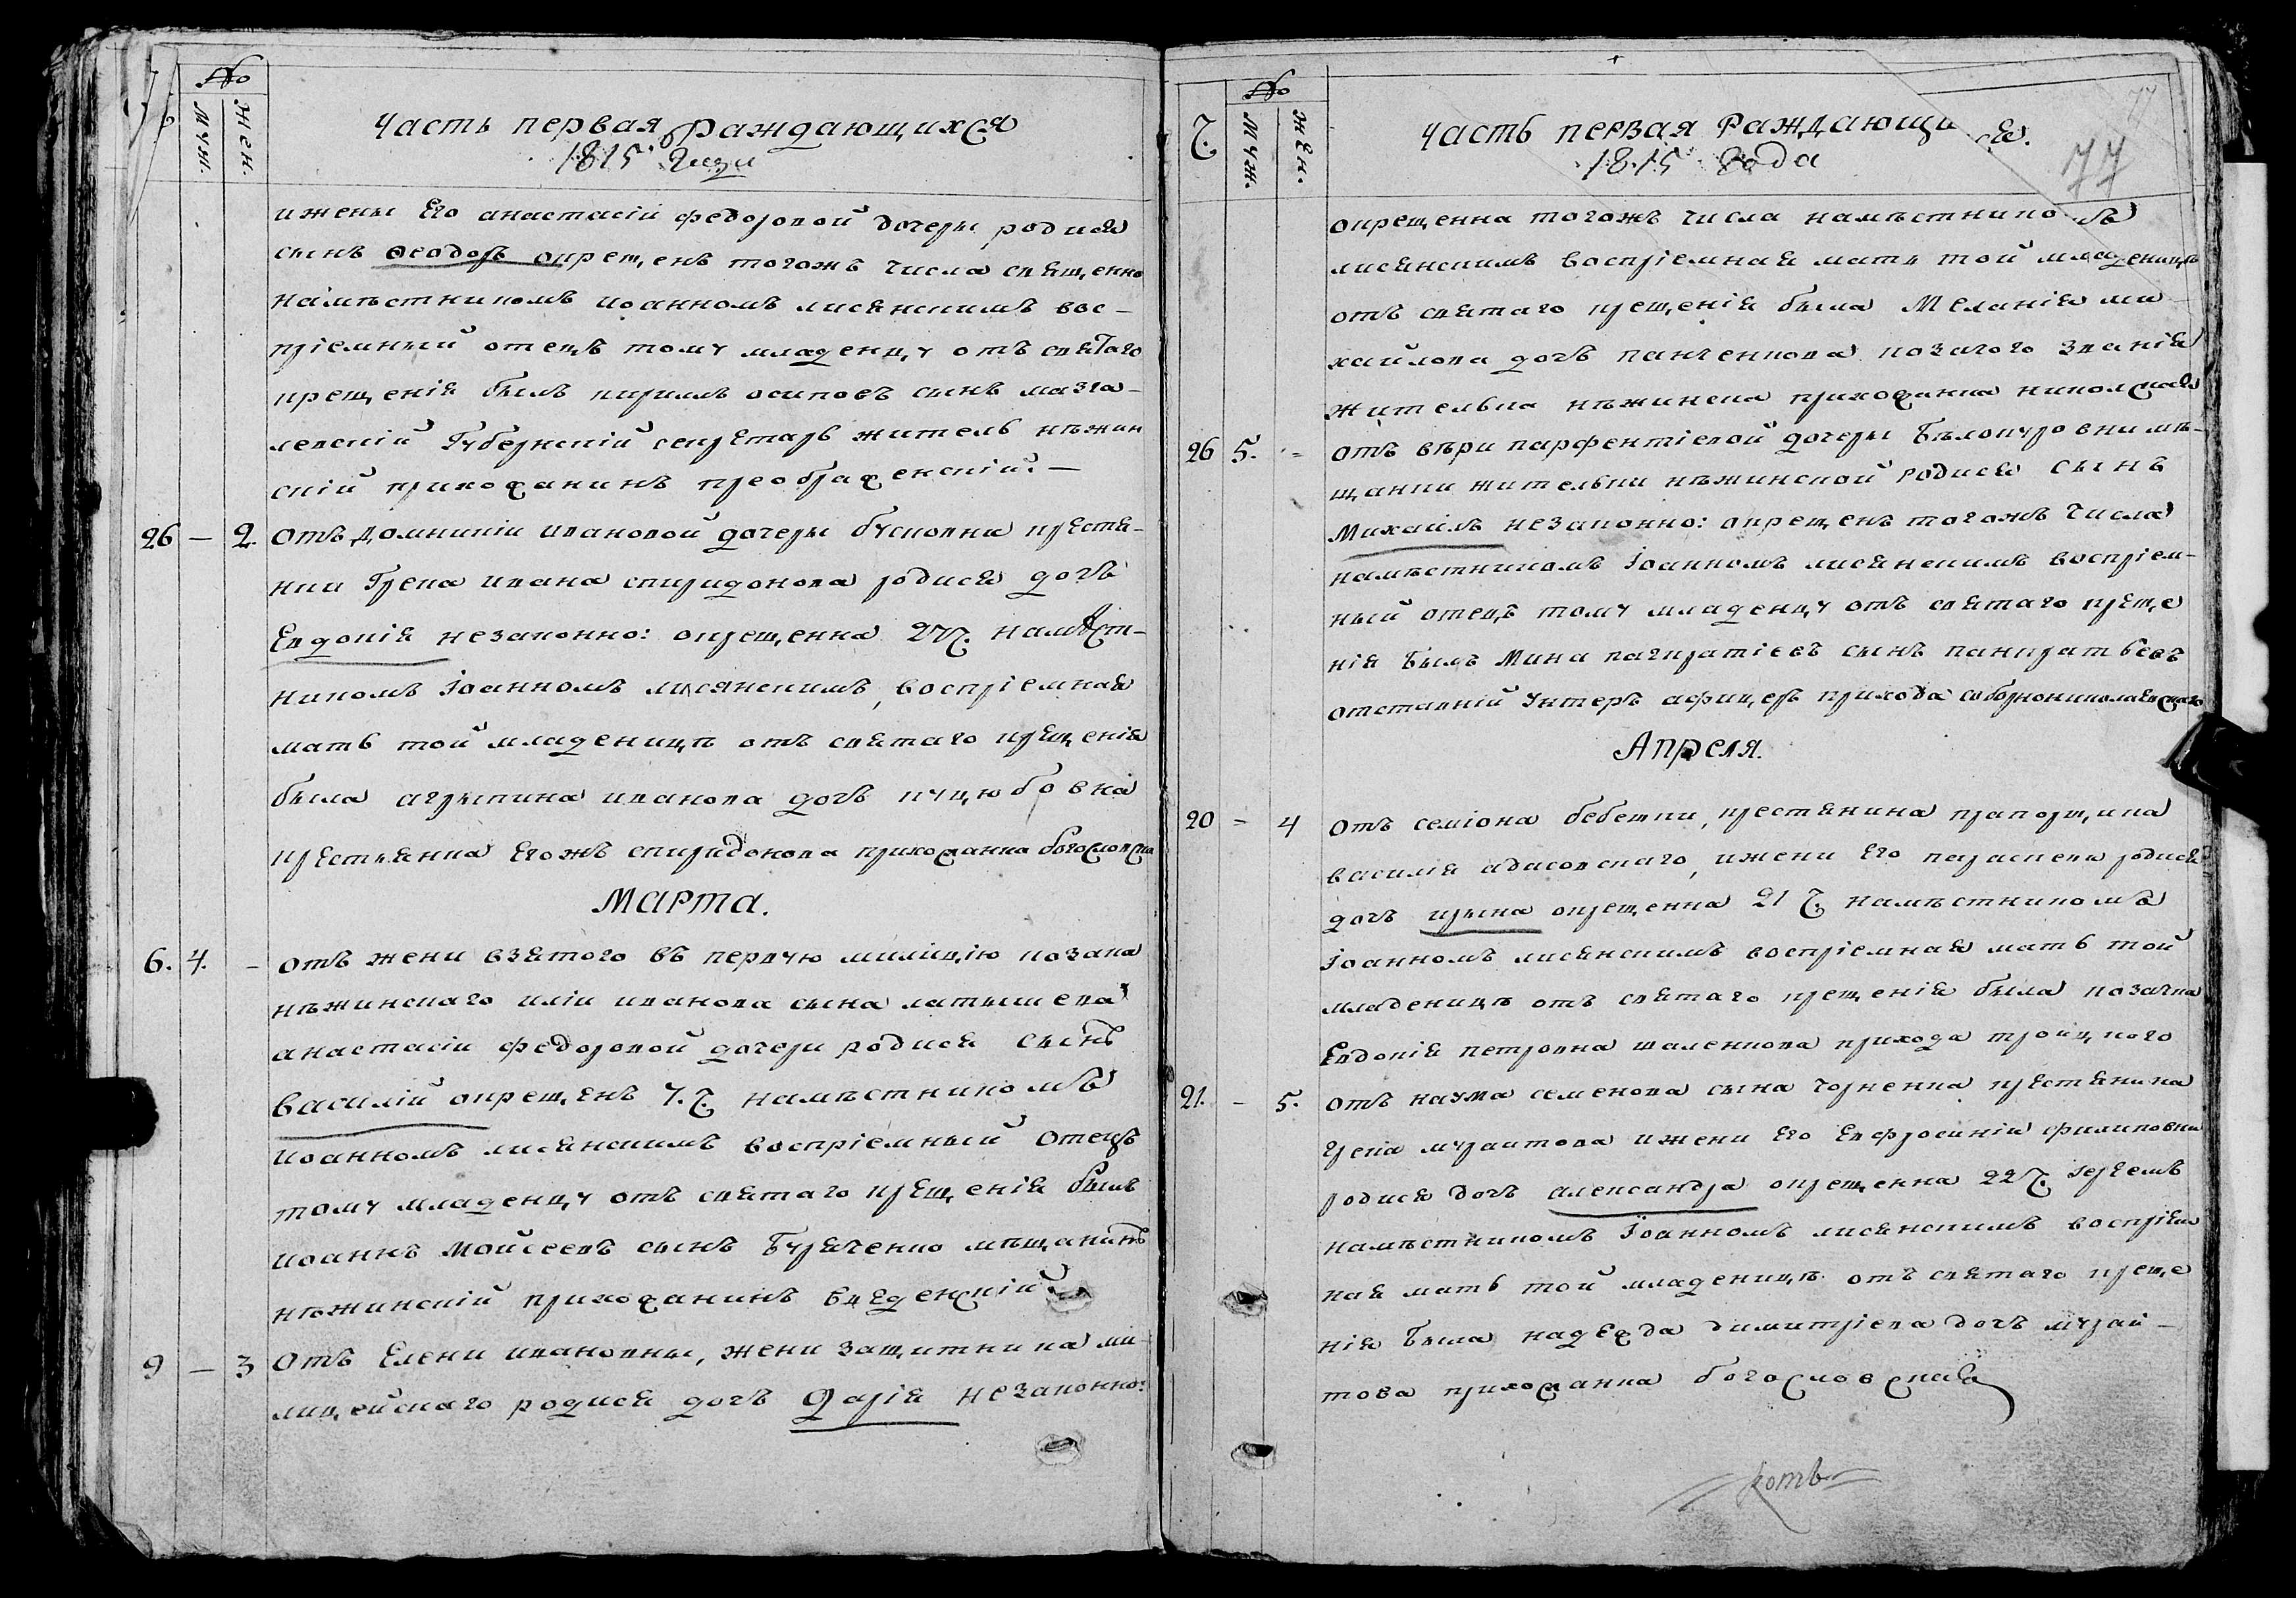 №
Муж.
Жен.
Часть первая раждающихся
1815 года
ижены Его анастасіи федоровой дочеры родися
сынъ Ѳеодоръ окрещенъ тогожъ числа священно
намѣстникомъ иоанномъ лисянскимъ вос-
пріемный отецъ тому младенцу отъ святаго
крещенія былъ кирилъ осиповъ сынъ
Губернскій секретарь житель нѣжин
скій прихожанинъ преображенскій. —
26 — 2. Отъ домникіи ивановой дочеры крестя-
нки Грека ивана спиридонова родися дочь
Евдокія незаконно: окрещенна 27 ч. намѣст-
никомъ Іоанномъ лисянскимъ, воспріемная
мать той младеницѣ отъ святаго крещенія
была агрыпина иванова дочь
крестьянка Егожъ спиридонова прихожанка богословска
Марта.
6. 4. - отъ жени взятого въ первую милицію козака
нѣжинскаго иліи иванова сына латышева
анастасіи федоровой дочери родися сынъ
василій окрещенъ 7. ч. намѣстникомъ
иоанномъ лисянскимъ воспріемный отецъ
тому младенцу отъ святаго крещенія былъ
иоаннъ Мойсеевъ сынъ мѣщанинъ
нѣжинскій прихожанинъ введенскій.
9 — 3 Отъ Елени ивановны, жени защитника ми-
лицейскаго родися дочь Дарія незаконно:
Ч.
№
Муж.
Жен.
Часть первая Раждающи ся.
1815 года
77
77
окрещенна тогожъ числа намѣстнико мъ
лисянскимъ воспріемная мать той младеницѣ
отъ святаго крещенія была Меланія ми-
хайлова дочь панченкова козачого званія
жителька нѣжинска прихожанка николская
26 5. - отъ вѣри парфентіевой дочеры мѣ-
щанки жительки нѣжинской родися сынъ
Михаилъ незаконно: окрещенъ тогожъ числа
намѣстникомъ Іоанномъ лисянскимъ воспріем-
ный отецъ тому младенцу отъ святаго креще
нія былъ Мина сынъ панкратьевъ
отставній унтеръ афицеръ прихода соборониколаевскаго
Апреля.
20 - 4 отъ семіона бебешки, крестянина прапорщика
василія адасовскаго, ижени Его параскеви родися
дочь ирына окрещенна 21 ч. намѣстникомъ
Іоанномъ лисянскимъ воспріемная мать той
младеницѣ отъ святаго крещенія была козачка
Евдокія петровна шаленкова прихода тройцкого
21. - 5. отъ наума семенова сына крестянина
грека мураитова ижени Его Евфросиніи филиповни
родися дочь александра окрещенна 22 ч. іереемъ
намѣстникомъ Іоанномъ лисянскимъ воспріем
ная мать той младеницѣ отъ святаго креще
нія была надежда димитріева дочь мурай-
това прихожанка богословская